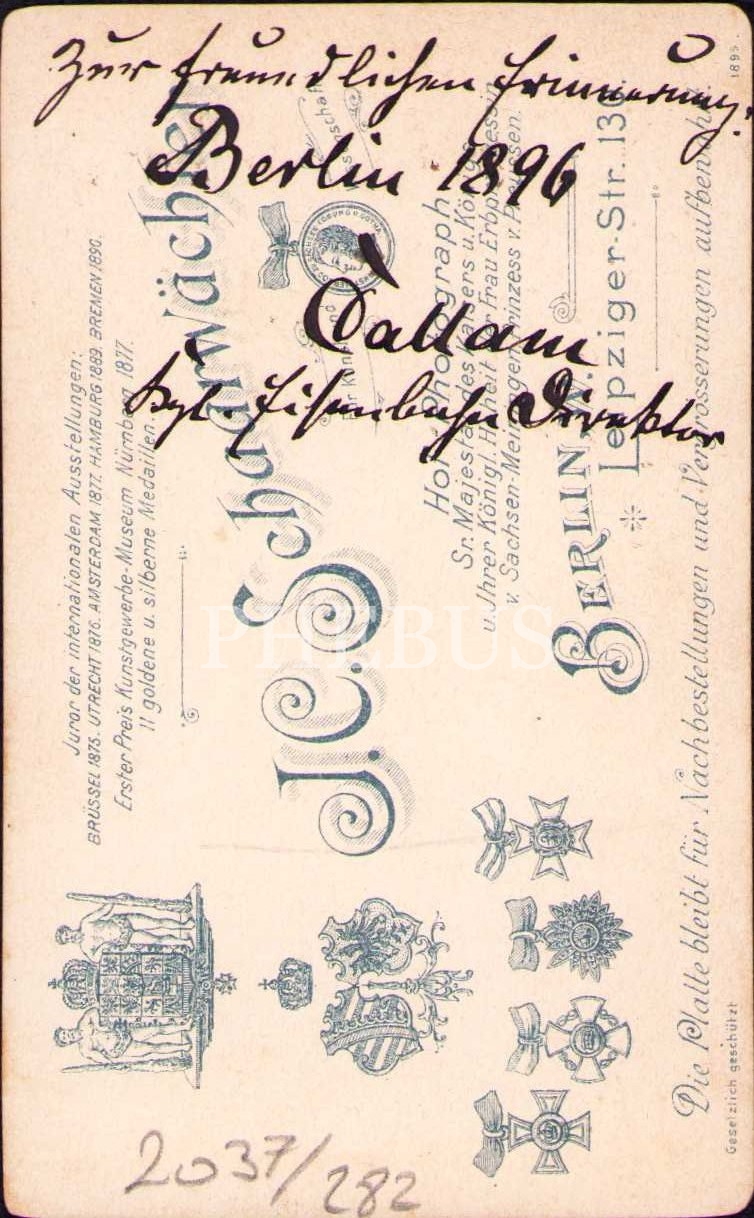 Zur freundlichen Erinnerung.
Berlin 1896
Kgl. Eisenbahn Direktor
Juror der internationalen Ausstellungen:
BRÜSSEL 1875. UTRECHT 1876. AMSTERDAM 1877. HAMBURG 1889. BREMEN 1890.
Erster Preis Kunstgewerbe-Museum Nürnberg 1877.
11 goldene u. silberne Medaillen.
J.C. Schaarwächter
Hof-Photograph
Sr. Majestät des Kaisers u. Königs
u. Ihrer Königl. Hoheit der Frau Erbprinzessin
v. Sachsen-Meiningen Prinzess v. Preussen.
BERLIN, W.
Leipziger-Str. 130.
Die Platte bleibt für Nachbestellungen und Vergrösserungen aufbewahrt
Gesetzlich geschützt
1895.
PHEBUS
2037/282